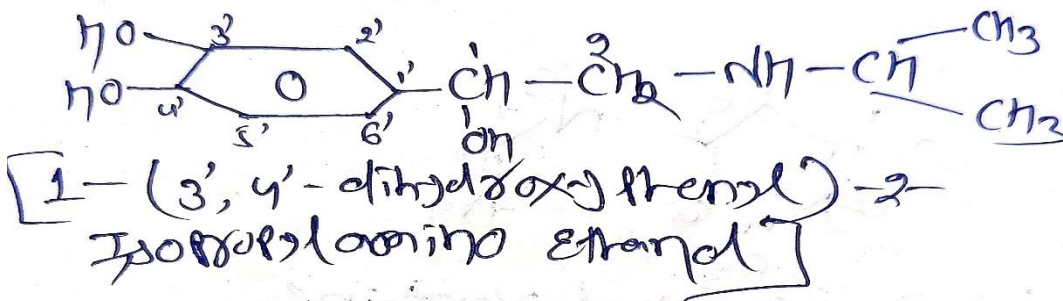 HO 3' 2'
HO 4' 5' 6' 1' CH 1 OH – CH2 2 – NH – CH CH3 CH3
[1 – (3', 4' - dihydroxy phenyl) -2-
Isopropylamino Ethanol]